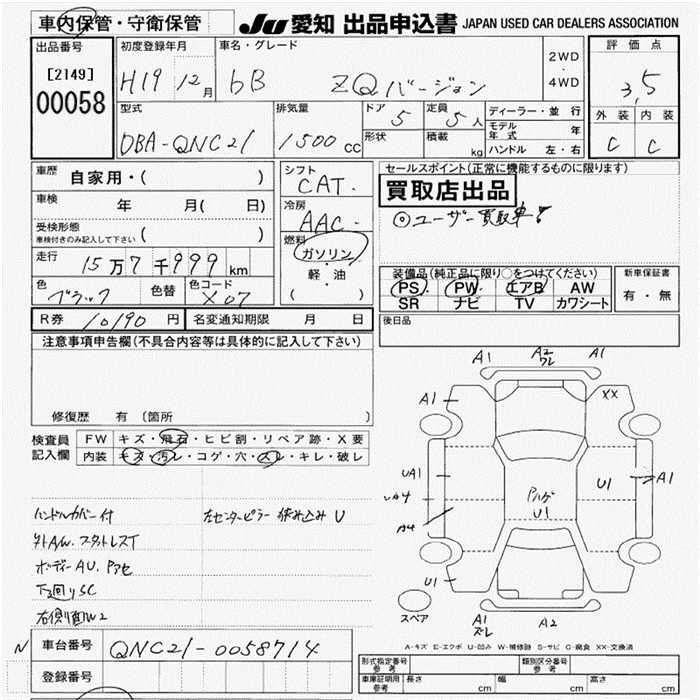 車内保管・守衛保管
JU 愛知 出品申込書 JAPAN USED CAR DEALERS ASSOCIATION
出品番号
[2149]
00058
初度登録年月
H19 12月
車名・グレード
bB ZQバージョン
2WD
・
4WD
評価点
3,5
外装 内装
C C
型式
DBA-QNC21
排気量
1500cc
ドア
5
定員
5人
形状
積載
kg
ディーラー・並行
モデル年式 年
ハンドル 左・右
車歴 自家用・( )
車検 年 月( 日)
受検形態
車検付きのみ記入して下さい ( )
走行 15万7千999km
色
ブラック
色替
色コード
X07
シフト
CAT.
冷房
AAC
燃料
ガソリン
・
軽・油
( )
セールスポイント(正常に機能するものに限ります)
買取店出品
◎ユーザー買取車!
装備品(純正品に限り○をつけてください)
PS PW エアB AW
SR ナビ TV カワシート
新車保証書
有・無
R券 10190円
名変通知期限 月 日
後日品
注意事項申告欄(不具合内容等は具体的に記入して下さい)
修復歴 有〔箇所
検査員
記入欄
FW キズ・飛石・ヒビ割・リペア跡・X要
内装 キズ・汚レ・コゲ・穴・スレ・キレ・破レ
ハンドルカバー付
左センターピラー 挟み込み U
外AW.スタットレスT
ボーデーAU.Pアセ
下回りSC
右側面W2
A1 A2 A1
ワレ
A1 XX
UA1
A4
A4
Pハゲ
U1
U1
A1
U1
スペア
A1
ズレ
A2
A-キズ E-エクボ U-凹み W-補修跡 S-サビ C-腐食 XX-交換済
N
車台番号 QNC21-0058714
登録番号
形式指定番号
参考
類別区分番号
参考
車庫証明用
参考
長さ cm 幅 cm 高さ cm